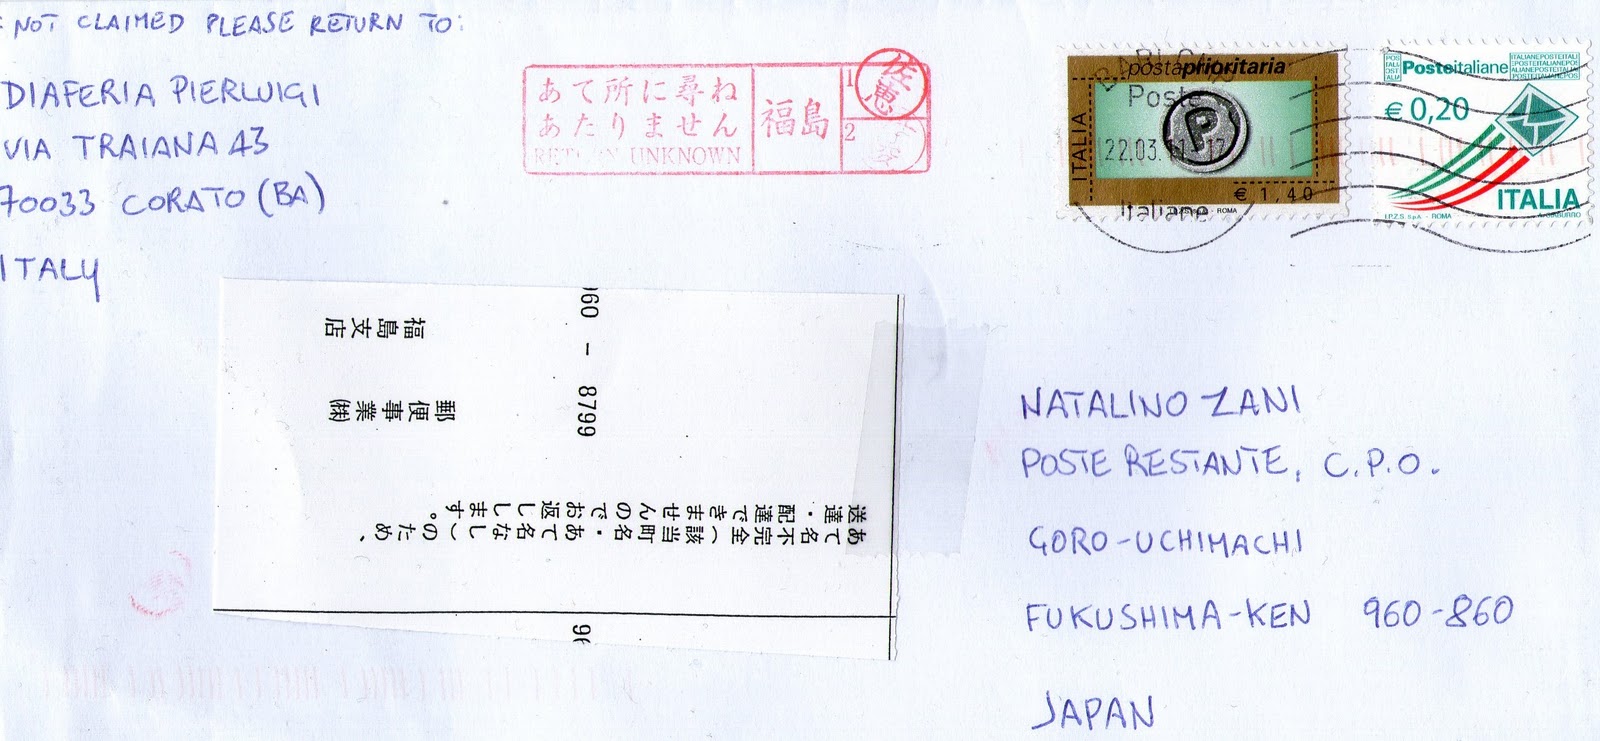 NOT CLAIMED PLEASE RETURN TO:
DIAFERIA PIERLUIGI
VIA TRAIANA 43
70033 CORATO (BA)
ITALY
あて所に尋ね
あたりません
RETURN UNKNOWN
福島
1
2
佐恵
postaprioritaria
Poste
22.03.
P
ITALIA
€ 1,40
Italiane
I.P.Z.S. S.p.A. - ROMA
Posteitaliane
€ 0,20
ITALIA
I.P.Z.S. S.p.A. - ROMA
960 - 8799
福島支店
郵便事業㈱
あて名不完全（該当町名・あて名なし）のため、
送達・配達できませんのでお返しします。
NATALINO ZANI
POSTE RESTANTE, C.P.O.
GORO-UCHIMACHI
FUKUSHIMA-KEN 960-860
JAPAN